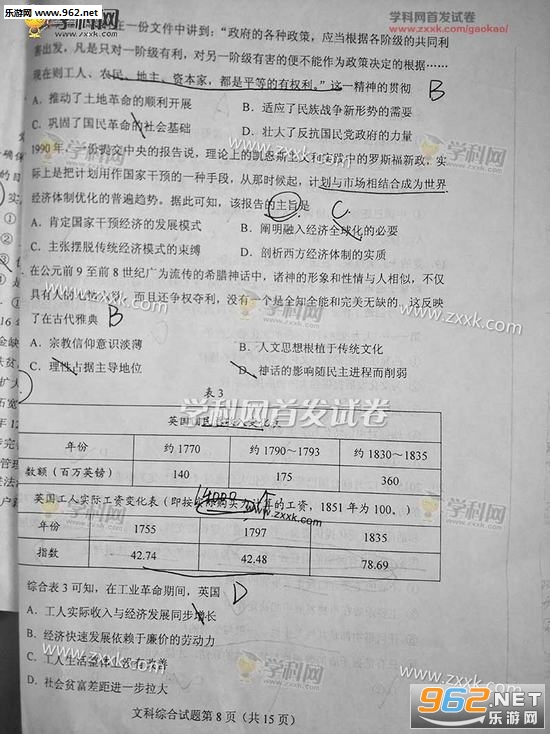 乐游网 www.962.net
学科网首发试卷
www.zxxk.com/gaokao/
在一份文件中讲到：“政府的各种政策，应当根据各阶级的共同利
害出发，凡是只对一阶级有利，对另一阶级有害的便不能作为政策决定的根据……
现在则工人、农民、地主、资本家，都是平等的有权利。”这一精神的贯彻 B
A. 推动了土地革命的顺利开展
B. 适应了民族战争新形势的需要
C. 巩固了国民革命的社会基础
D. 壮大了反抗国民党政府的力量
学科网
www.zxxk.com
1990年，一份提交中央的报告说，理论上的凯恩斯主义和实践中的罗斯福新政，实
际上是把计划用作国家干预的一种手段，从那时候起，计划与市场相结合成为世界
经济体制优化的普遍趋势。据此可知，该报告的主旨是 C
A. 肯定国家干预经济的发展模式
B. 阐明融入经济全球化的必要
C. 主张摆脱传统经济模式的束缚
D. 剖析西方经济体制的实质
在公元前9至前8世纪广为流传的希腊神话中，诸神的形象和性情与人相似，不仅
具有人的 而且还争权夺利，没有一个是全知全能和完美无缺的。这反映
了在古代雅典 B
学科网
www.zxxk.com
A. 宗教信仰意识淡薄
B. 人文思想根植于传统文化
C. 理性占据主导地位
D. 神话的影响随民主进程而削弱
表3
学科网首发试卷
英国国民
年份 约1770 约1790~1793 约1830~1835
数额（百万英镑） 140 175 360
英国工人实际工资变化表（即按 购买力计算的工资，1851年为100。）
www.zxxk.com
年份 1755 1797 1835
指数 42.74 42.48 78.69
综合表3可知，在工业革命期间，英国 D
A. 工人实际收入与经济发展同步增长
B. 经济快速发展依赖于廉价的劳动力
C. 工人生活整体 改善
D. 社会贫富差距进一步拉大
学科网
www.zxxk.com
文科综合试题第8页（共15页）
962.NET
乐游网